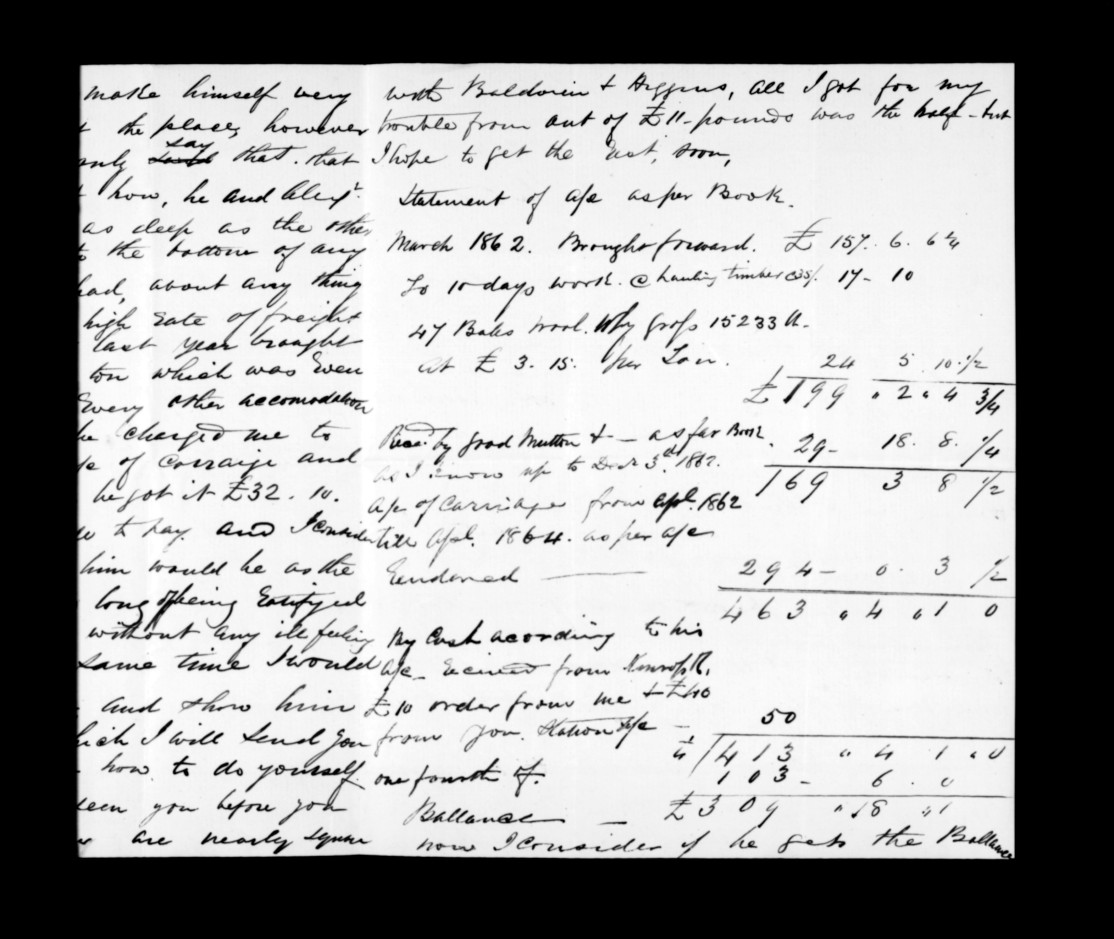 make himself very
the place, however
only say that. that
how, he and Alexr.
as deep as the other
to the bottom of any
had, about any thing
high rate of freight
last year brought
ton which was even
every other accomodation
he charged me to
of carraige and
he got it £32. 10.
to pay. and I consider
him would be as the
long of being
without any ill feeling
same time I would
and show him
which I will send you
how to do yourself.
seen you before you
are nearly square
with Baldwin & Higgins, all I got for my
trouble from out of £11-pounds was the half - but
I hope to get the rest, soon,
Statement of a/c as per Book.
March 1862. Brought forward. £ 157. 6. 6 1/4
To 10 days work. @ hauling timber @35/. 17 - 10
47 Bales wool. Why gross 15233 lb.
at £ 3. 15. per Ton. 24 5 10 1/2
£199 " 2 " 4 3/4
Recd. by good Mutton & - as far Book. 29 - 18. 8. 1/4
as I know up to Decr 3rd. 1862. 169 3 8 1/2
a/c of Carriages from Apl. 1862
till Apl. 1864. as per a/c
Rendered — 294 - 0. 3 1/2
463 " 4 " 1 0
By Cash acording to his
a/c received from
£10 order from me & £40
from you. Station a/c - 50
1/4 413 " 4 1 " 0
one fourth of. 103 - 6. 0
Ballance — £309 " 18 " 1
now I consider if he gets the Ballance